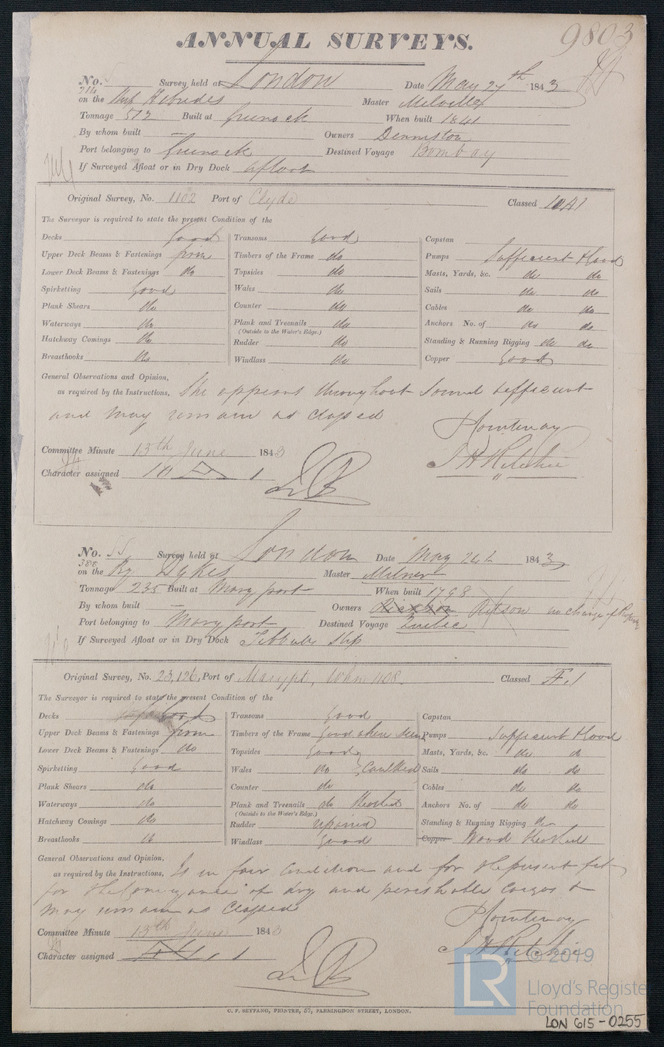 ANNUAL SURVEYS.
9803
No. Survey held at London Date May 27th 1843
314
on the Ship Hebrides Master Melville
Tonnage 572 Built at Greenock When built 1841
By whom built — Owners Denniston
Port belonging to Greenock Destined Voyage Bombay
If Surveyed Afloat or in Dry Dock afloat
Original Survey, No. 1102 Port of Clyde Classed 10A1
The Surveyor is required to state the present Condition of the
Decks Good Transoms Good Capstan
Upper Deck Beams & Fastenings firm Timbers of the Frame do Pumps Sufficient & Good
Lower Deck Beams & Fastenings do Topsides do Masts, Yards, &c. do do
Spirketting Good Wales do Sails do do
Plank Shears do Counter do Cables do do
Waterways do Plank and Treenails do Anchors No. of do do
(Outside to the Water's Edge.)
Hatchway Comings do Rudder do Standing & Running Rigging do do
Breasthooks do Windlass do Copper Good
General Observations and Opinion,
as required by the Instructions, She appears throughout Sound & efficient
and may remain as classed
Committee Minute 13th June 1843
J H Ritchie
Character assigned 10 A 1
No. 55 Survey held at London Date May 24th 1843
380
on the Bg Dykes Master Milner
Tonnage 235 Built at Maryport When built 1798
By whom built — Owners Ritson no change of Property
Port belonging to Maryport Destined Voyage Quebec
If Surveyed Afloat or in Dry Dock Tibbutts Slip
Original Survey, No. 23,126, Port of Marypt, Whn 1108. Classed Æ.1
The Surveyor is required to state the present Condition of the
Decks Good Transoms Good Capstan
Upper Deck Beams & Fastenings firm Timbers of the Frame Good where seen Pumps Sufficient & Good
Lower Deck Beams & Fastenings do Topsides Good Masts, Yards, &c. do do
Spirketting Good Wales do Caulked Sails do do
Plank Shears do Counter do Cables do do
Waterways do Plank and Treenails do Anchors No. of do do
(Outside to the Water's Edge.)
Hatchway Comings do Rudder repaired Standing & Running Rigging do
Breasthooks do Windlass Good Copper Wood
General Observations and Opinion,
as required by the Instructions, Is in fair Condition and for the present fit
for the conveyance of dry and perishable cargos &
may remain as Classed
Committee Minute 13th June 1843
J H Ritchie
Character assigned Æ 1
C. F. SEYFANG, PRINTER, 57, FARRINGDON STREET, LONDON.
LR © 2019
Lloyd's Register
Foundation
LON 615-0255